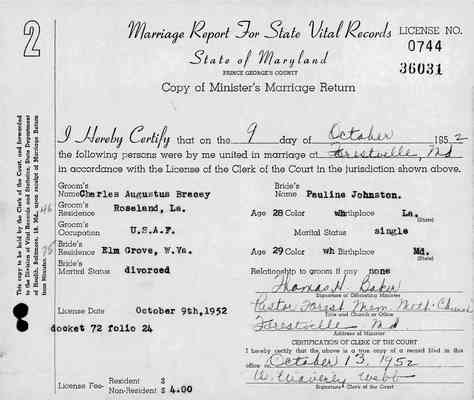 2
Marriage Report For State Vital Records
LICENSE NO.
0744
36031
State of Maryland
PRINCE GEORGE'S COUNTY
Copy of Minister's Marriage Return
I Hereby Certify that on the 9 day of October 1952
the following persons were by me united in marriage at Forestville, Md
in accordance with the License of the Clerk of the Court in the jurisdiction shown above.
Groom's Name Charles Augustus Bracey
Bride's Name Pauline Johnston.
Groom's Residence Roseland, La.
Age 28 Color wh Birthplace La.
(State)
Groom's Occupation U.S.A.F.
Marital Status single
Bride's Residence Elm Grove, W.Va.
Age 29 Color wh Birthplace Md.
(State)
Bride's Marital Status divorced
Relationship to groom if any none
Thomas H Baker
Signature of Officiating Minister
License Date October 9th, 1952
Pastor Forest Mem. Meth. Church
Title and Church or Office
docket 72 folio 24
Forestville Md
Address of Minister
CERTIFICATION OF CLERK OF THE COURT
I hereby certify that the above is a true copy of a record filed in this
office on October 13, 1952
W. Waverly Webb
Signature Clerk of the Court
License Fee- Resident $
Non-Resident $ 4.00
This copy to be held by the Clerk of the Court, and forwarded
to the Division of Vital Records and Statistics, State Department
of Health, Baltimore, 18, Md., upon receipt of Marriage Return
from Minister.